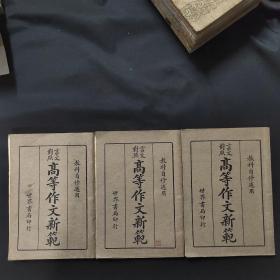 教科自修適用
言文對照
高等作文新範
世界書局印行
教科自修適用
言文對照
高等作文新範
世界書局印行
教科自修適用
言文對照
高等作文新範
世界書局印行